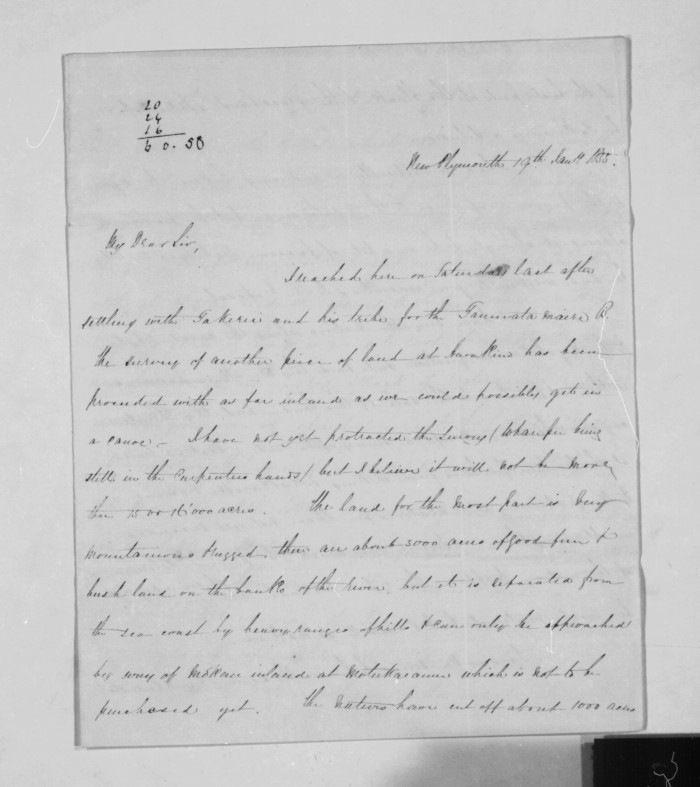 20
24
16
6 0. 58
New Plymouth 19th Jany 1855.
My Dear Sir,
I reached here on Saturday last after
settling with Takerei and his tribe for the Taumata maire B.
The survey of another piece of land at Awakino has been
proceeded with as far inland as we could possibly get in
a canoe - I have not yet protracted the survey (Wharepu being
still in the Carpenters hands) but I believe it will not be more
than 15 or 16000 acres. The land for the most part is very
mountainous & rugged, there are about 3000 acres of good fern &
bush land on the banks of the river, but it is separated from
the sea coast by heavy ranges of hills & can only be approached
by way of Mokau inland at Motukaramu which is not to be
purchased yet. The Natives have cut off about 1000 acres